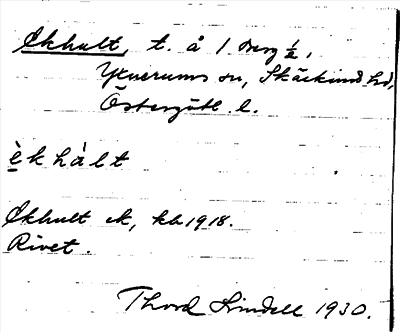 Ekhult, t. å 1 Berg ½,
Yxnerums sn, Skärkinds hd,
Östergötl. l.
èkhàlt
Ekhult ek, kb 1918.
Rivet.
Thord Lindell 1930.